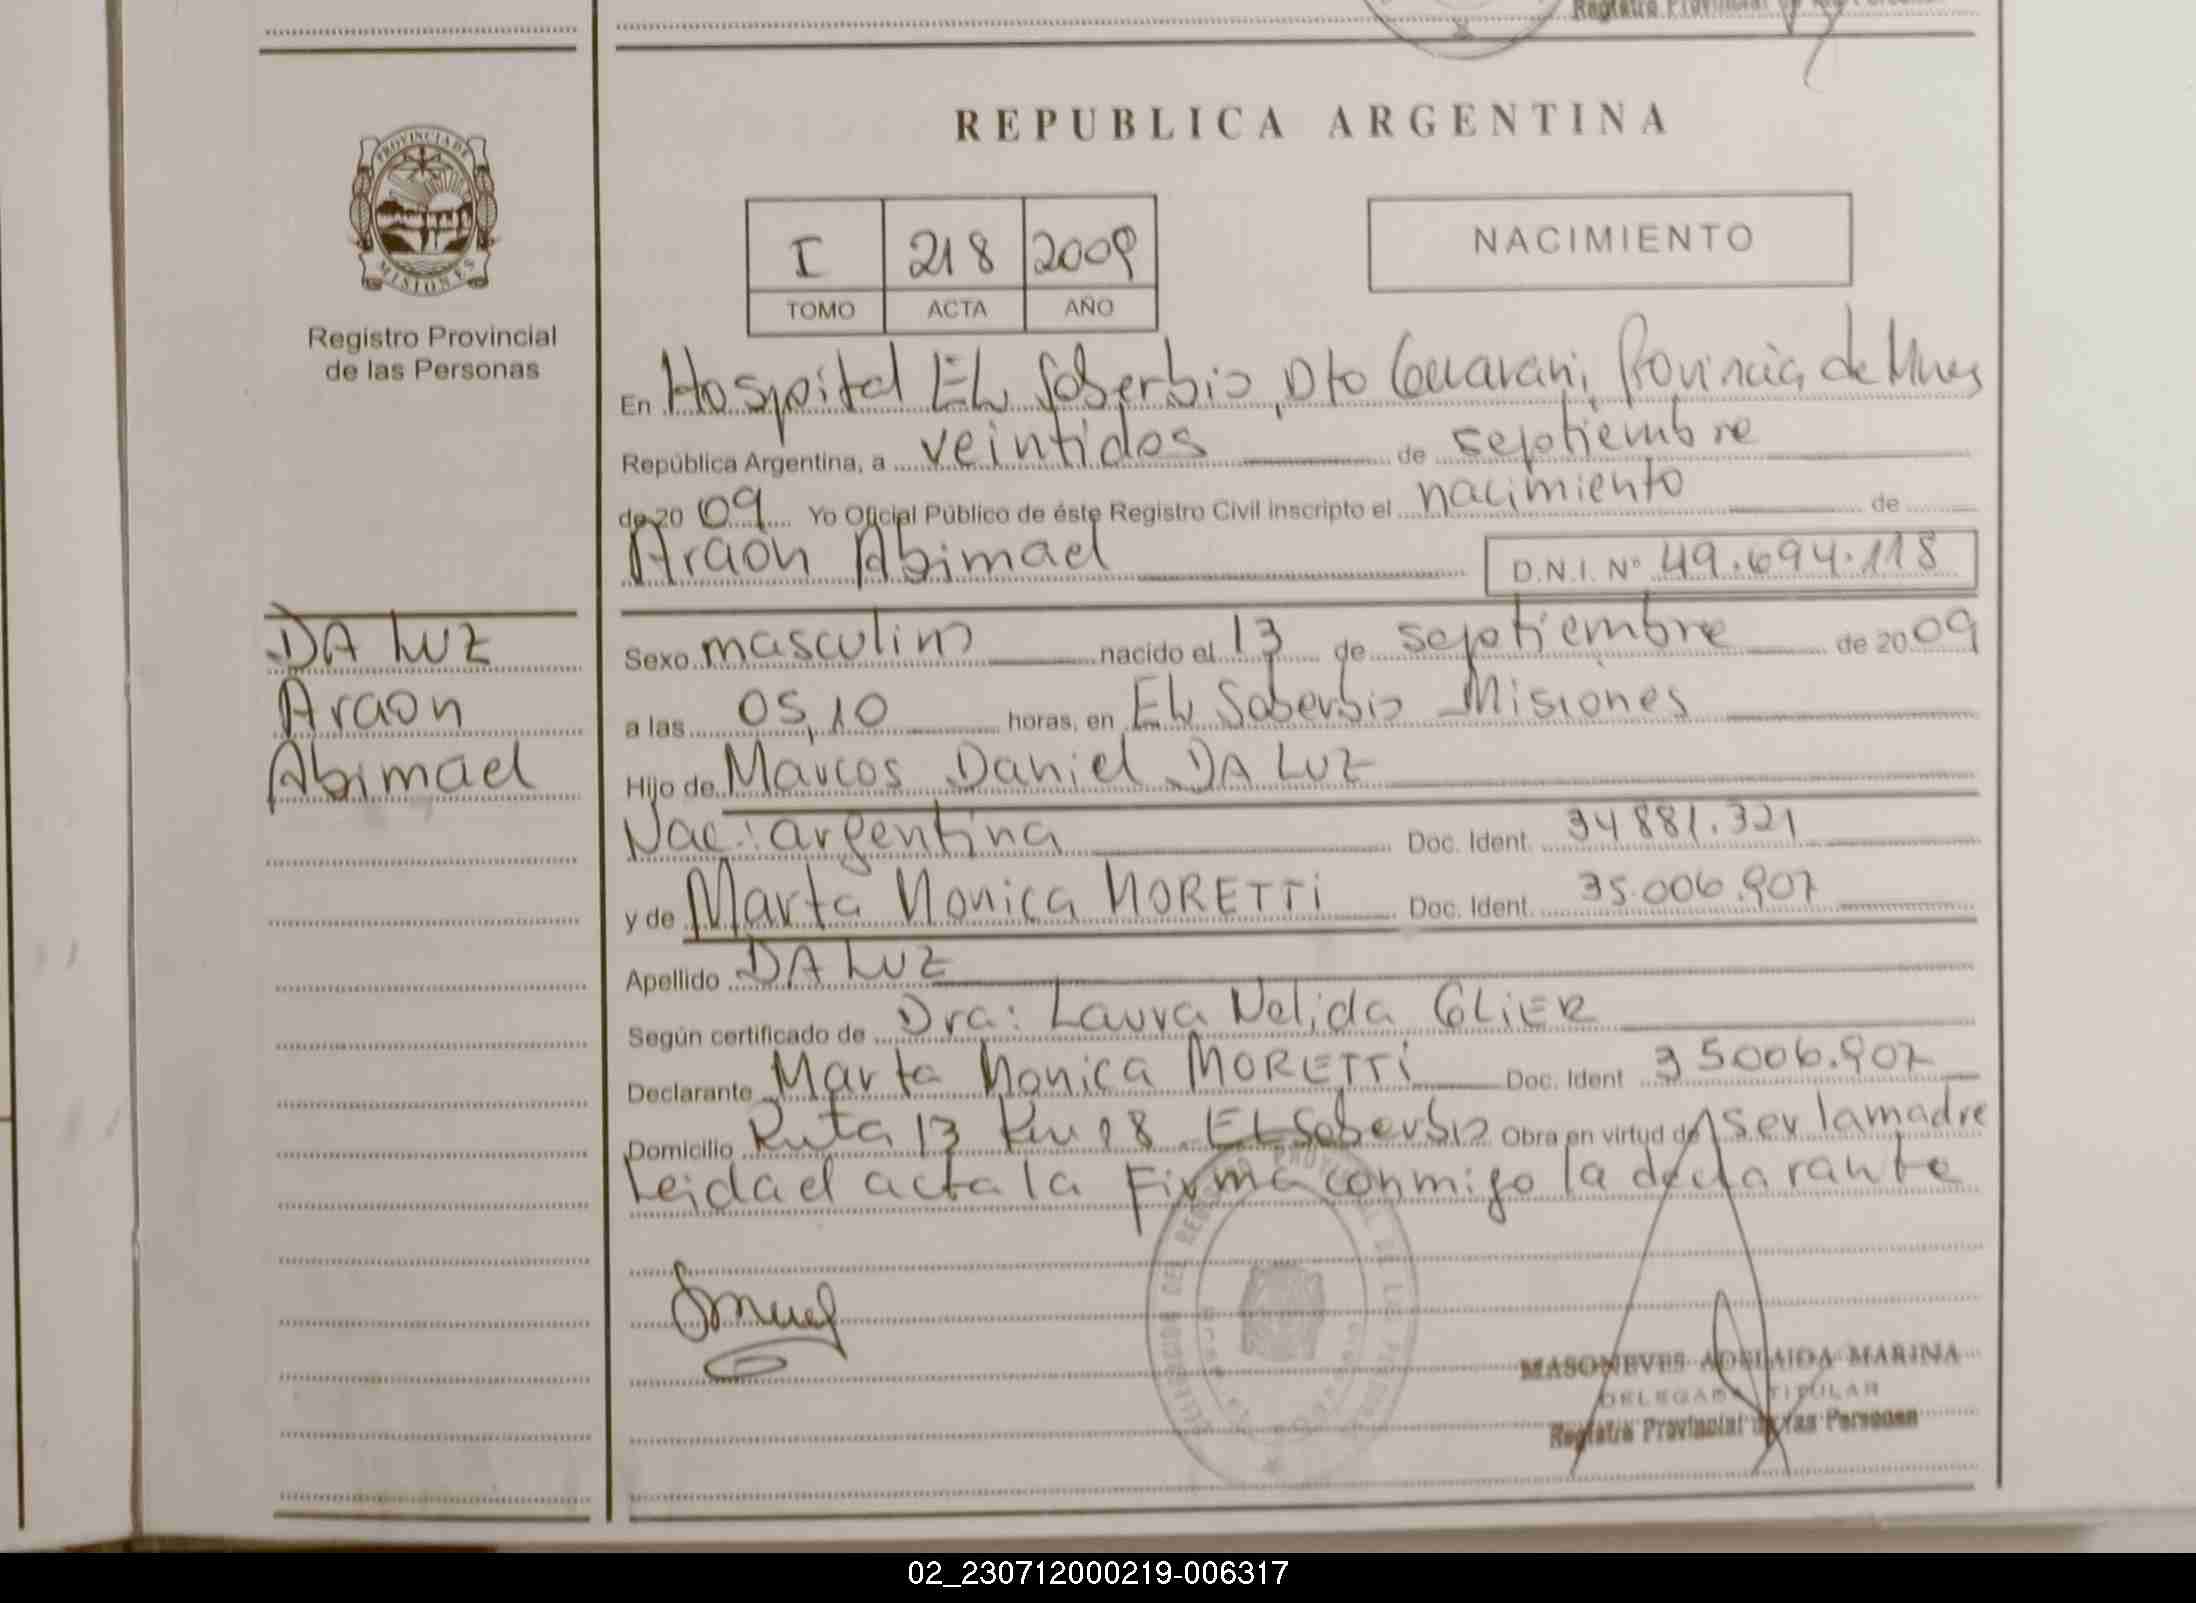 REPUBLICA ARGENTINA
PROVINCIA DE
MISIONES
Registro Provincial
de las Personas
I 218 2009
TOMO ACTA AÑO
NACIMIENTO
En Hospital EL Soberbio, Dto Guarani, Provincia de Mnes
República Argentina, a veintidos de septiembre
de 2009 Yo Oficial Público de éste Registro Civil inscripto el nacimiento de
Araon Abimael D.N.I. Nº 49.694.118
DA LUZ
Araon
Abimael
Sexo masculino nacido el 13 de septiembre de 2009
a las 05,10 horas, en EL Soberbio Misiones
Hijo de Marcos Daniel DA LUZ
Nac.: argentina Doc. Ident. 34881.321
y de Marta Monica MORETTI Doc. Ident. 35.006.907
Apellido DA LUZ
Según certificado de Dra: Laura Nelida GLIER
Declarante Marta Monica MORETTI Doc. Ident 35006.907
Domicilio Ruta 13 Km 28 EL Soberbio Obra en virtud de ser la madre
Leida el acta la firma conmigo la declarante
MASONEVES ADELAIDA MARINA
DELEGADA TITULAR
Registro Provincial de las Personas
02_230712000219-006317